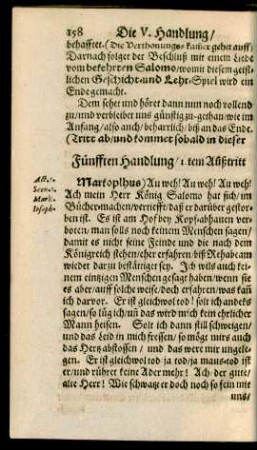 158 Die V. Handlung/
behafftet. (Die Verthonungs-kamer gehet auff)
Darnach folget der Beschluß mit einem Liede
vom bekehrten Salomo/womit diesem geist-
lichen Geschicht-und Lehr-Spiel wird ein
Ende gemacht.
Dem sehet und höret dann nun noch vollend
zu/und verbleibet uns günstig zu-gethan/wie im
Anfang/also auch/beharrlich/biß an das Ende.
(Tritt ab/und kommet sobald in dieser
Fünfften Handlung/ 1. tem Aüßtritt
Act. 5.
Scen. 1.
Mark.
Joseph.
Markolphus) Au weh! Au weh! Au weh!
Ach mein Herr König Salomo hat sich/im
Büchermachen/vertiefft/daß er darüber gestor-
ben ist. Es ist am Hof bey Kopfabhauen ver-
boten/man solls noch keinem Menschen sagen/
damit es nicht seine Feinde und die nach dem
Königreich stehen/eher erfahren/biß Rehabeam
wieder darzu bestättiget sey. Ich wils auch kei-
nem einzigen Menschen gesagt haben/wenn sie
es aber/auff solche weise/doch erfahren/was kan
ich darvor. Er ist gleichwol tod! solt ich anders
sagen/so lüg ich/und das wird mich kein ehrlicher
Mann heisen. Solt ich dann still schweigen/
und das Leid in mich fressen/so möge mirs auch
das Hertz abstossen / und das were mir ungele-
gen. Er ist gleichwol tod ja tod/ja maus-tod ist
er/und rühret keine Ader mehr! Ach der gute/
alte Herr! Wie schwatzt er doch noch so fein mit
uns/